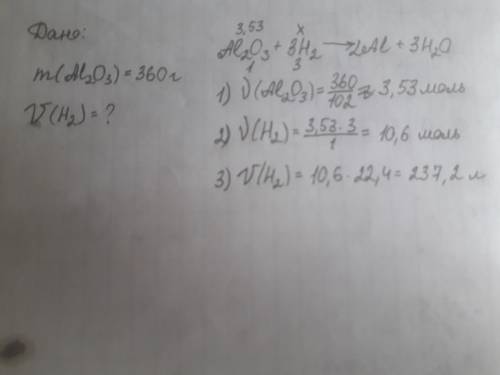 Дано:
m(Al₂O₃) = 360 г
V(H₂) = ?
3,53 x
Al₂O₃ + 3H₂ → 2Al + 3H₂O
1 3
1) ν(Al₂O₃) = 360/102 ≈ 3,53 моль
2) ν(H₂) = 3,53·3/1 = 10,6 моль
3) V(H₂) = 10,6 · 22,4 = 237,2 л